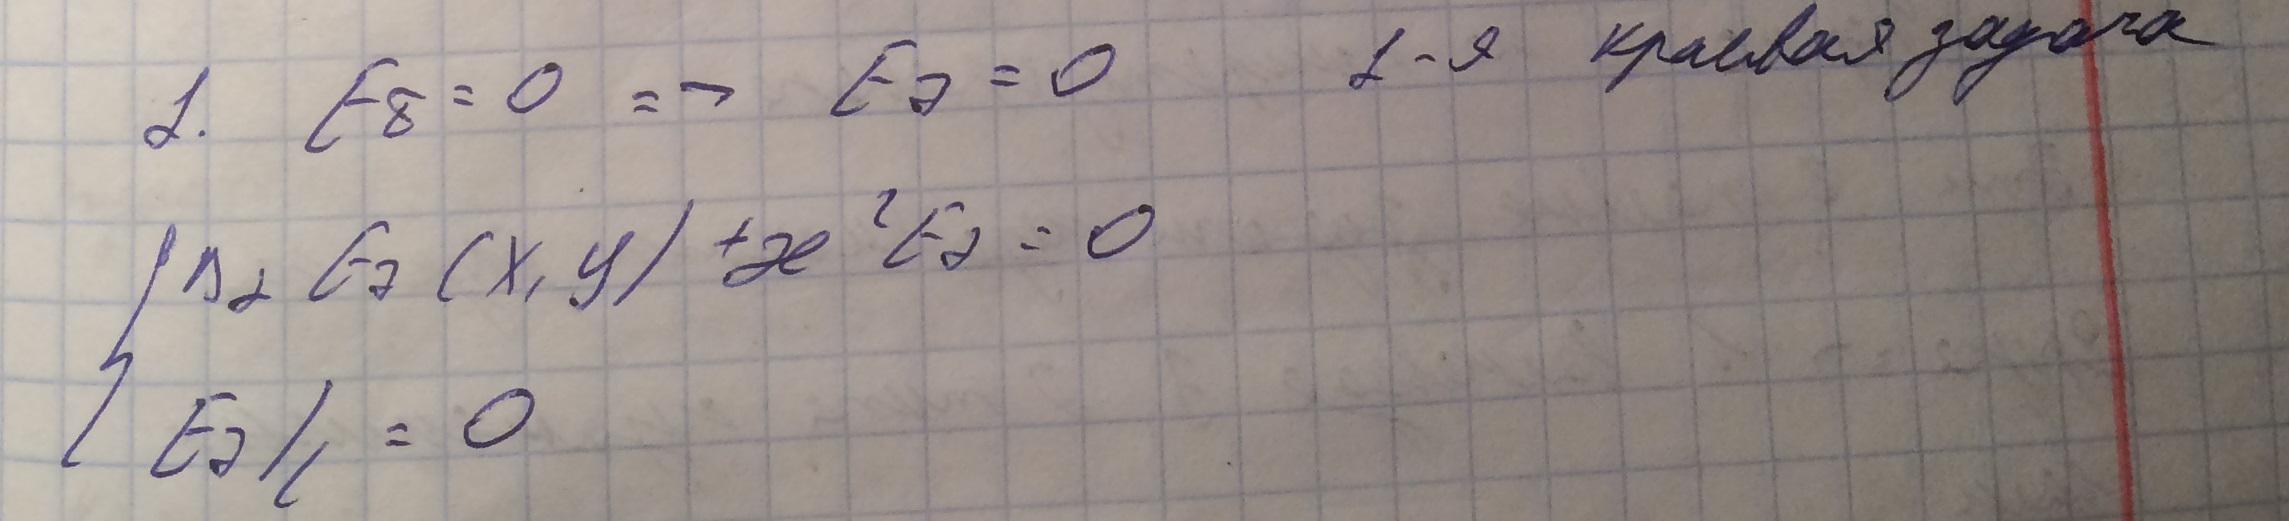 1. E_τ = 0 => E_z = 0 1-я краевая задача
Δ_⊥ E_z (x, y) + æ²E_z = 0
E_z|_L = 0